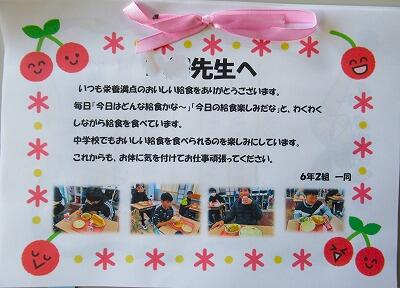 先生へ
いつも栄養満点のおいしい給食をありがとうございます。
毎日「今日はどんな給食かな～」「今日の給食楽しみだな」と、わくわく
しながら給食を食べています。
中学校でもおいしい給食を食べられるのを楽しみにしています。
これからも、お体に気を付けてお仕事頑張ってください。
6年2組　一同